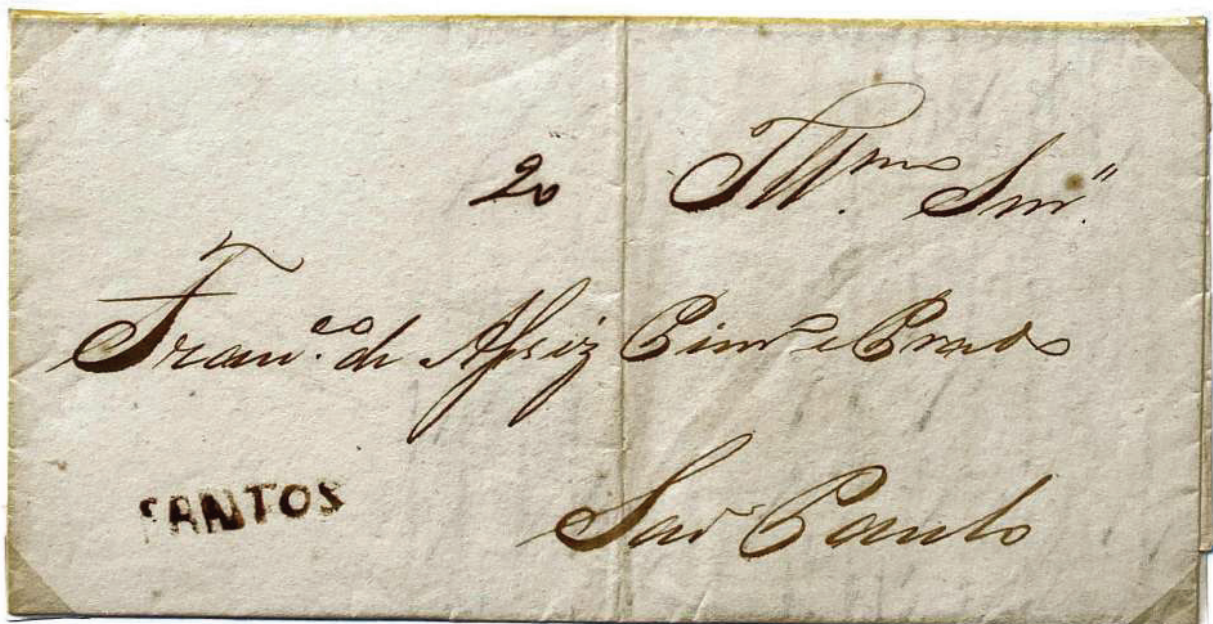 20 Illmo. Snr.
Franco. de Assiz Pinro e Prado
SANTOS
São Paulo